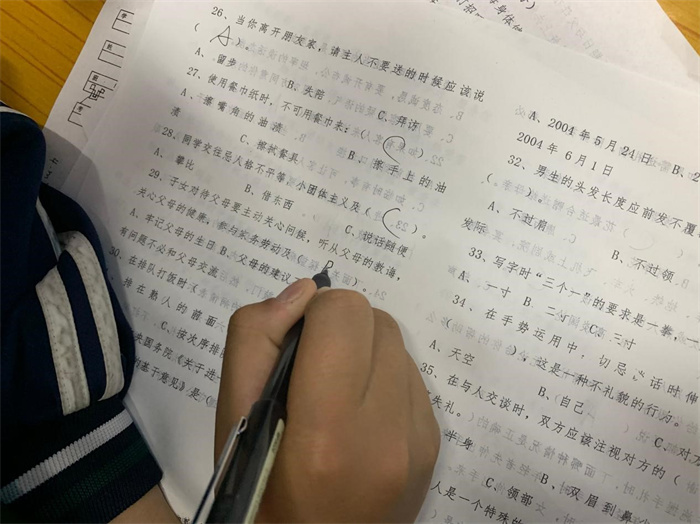 26、当你离开朋友家，请主人不要送的时候应该说
（A）。
A、留步 B、失陪 C、拜访
27、使用餐巾纸时，不可用餐巾来：（C）
A、擦嘴角的油渍 B、擦手上的油
渍 C、擦拭餐具
28、同学交往忌人格不平等、小团体主义及（C）。
A、攀比 B、借东西 C、说话随便
29、子女对待父母要主动关心问候，听从父母的教诲，
关心父母的健康，参与家务劳动及（B）。
A、牢记父母的生日 B、父母的建议
有问题不必和父母交流
30、在排队打饭时（
排在熟人的前面
C、按次序排
国务院《关于进一
若干意见》是（
A、2004年5月24日 B、2
2004年6月1日
32、男生的头发长度应前发不覆
（ ）。
A、不过眉 B、不过领
发际
33、写字时“三个一”的要求是一拳，一
A、一寸 B、二寸 C、三寸
34、在手势运用中，切忌“话时伸
（ ），这是一种不礼貌的行为。
A、天空 B、自己 C、对方
35、在与人交谈时，双方应该注视对方的（
失礼。
半身 B、双眉到鼻
C、领部
人是一个特殊的